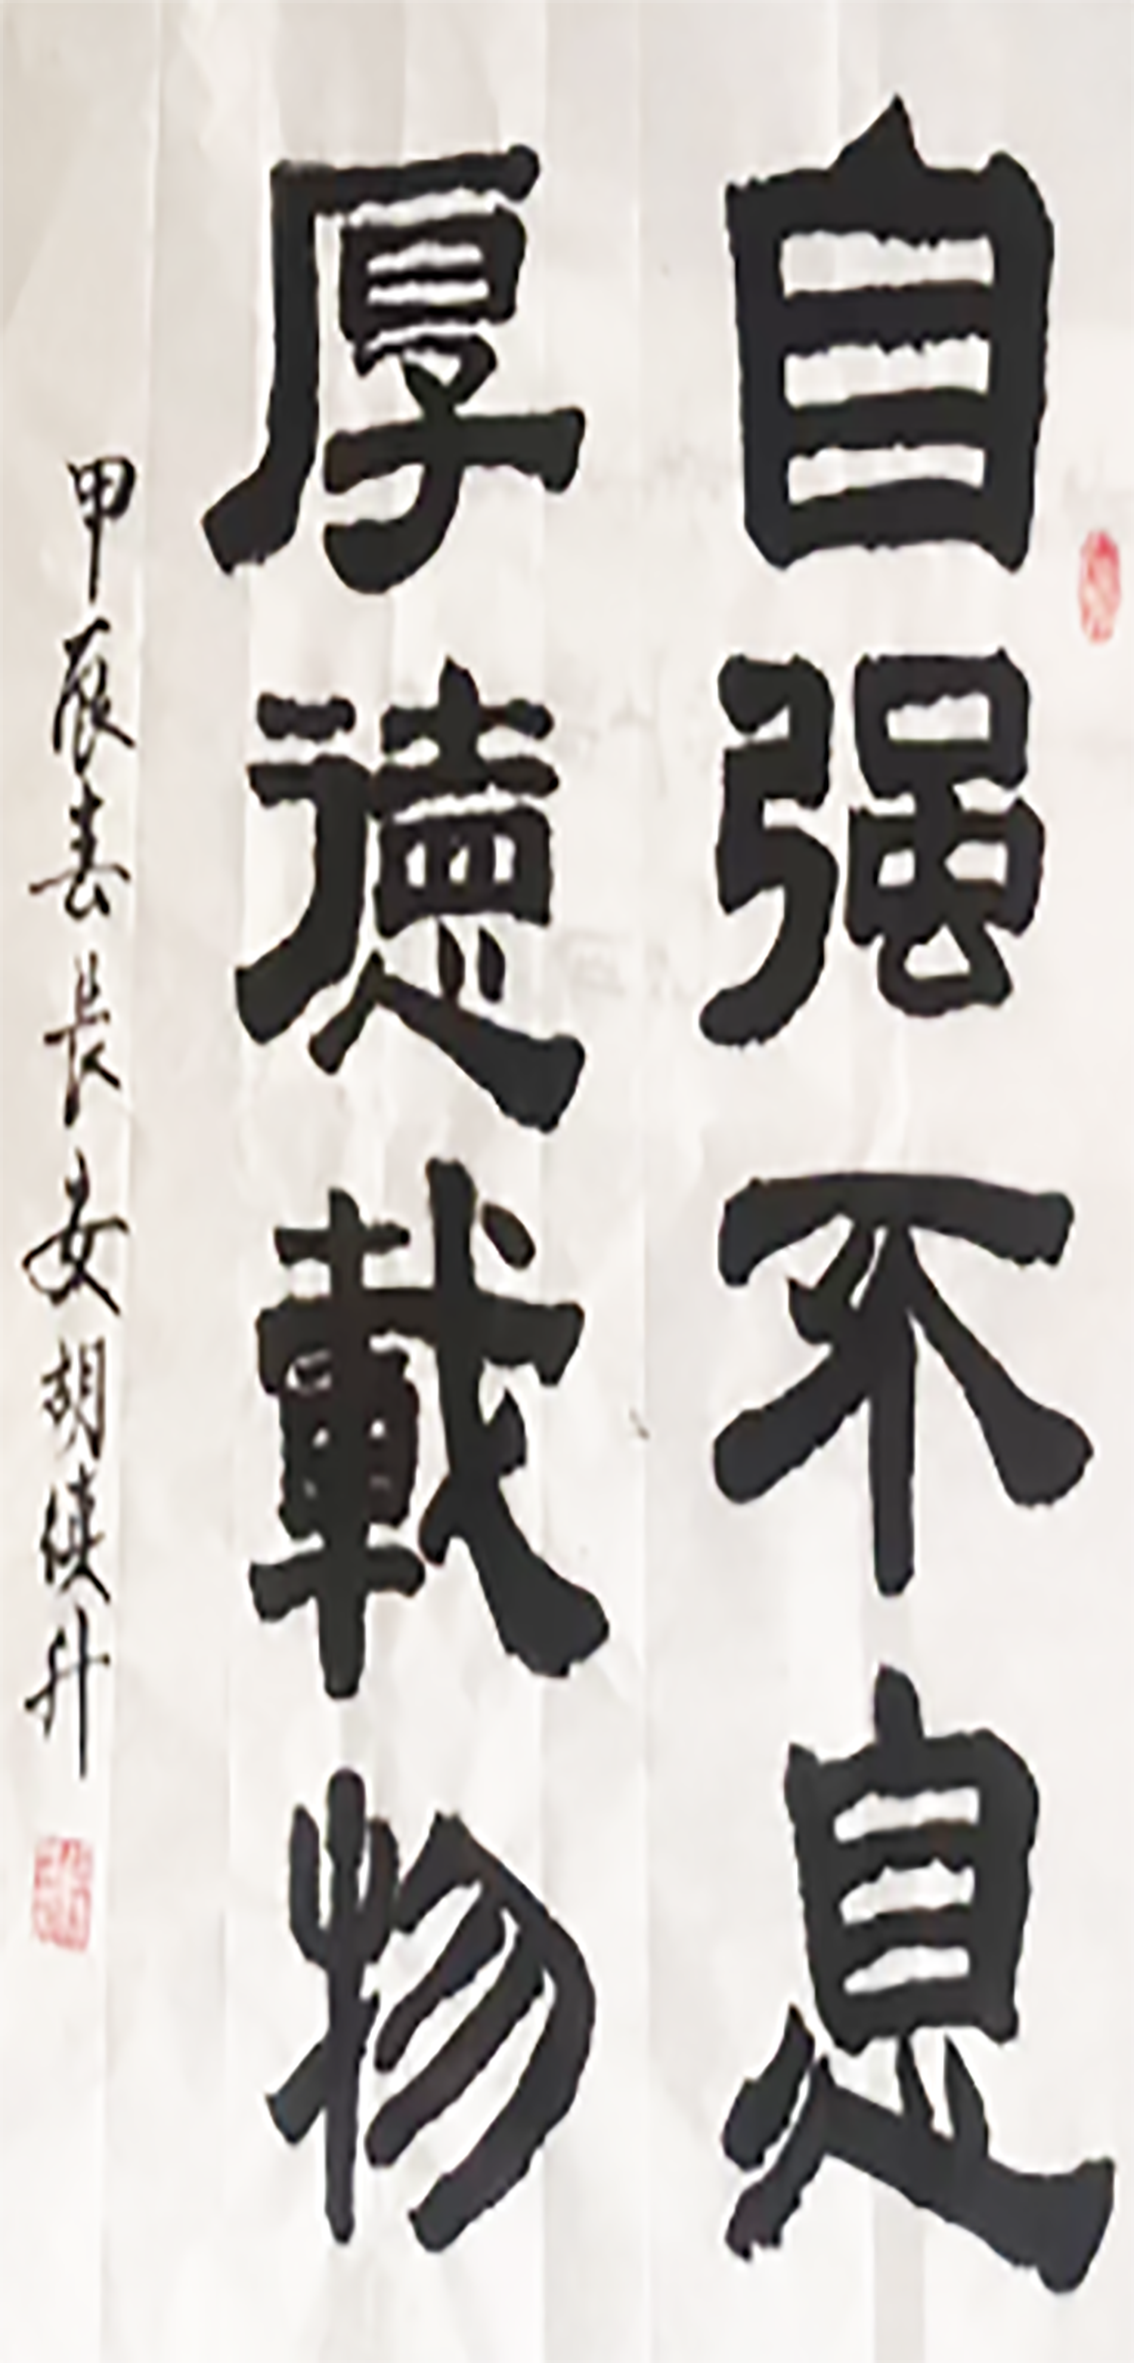 自强不息
厚德載物
甲辰春长安胡侠升